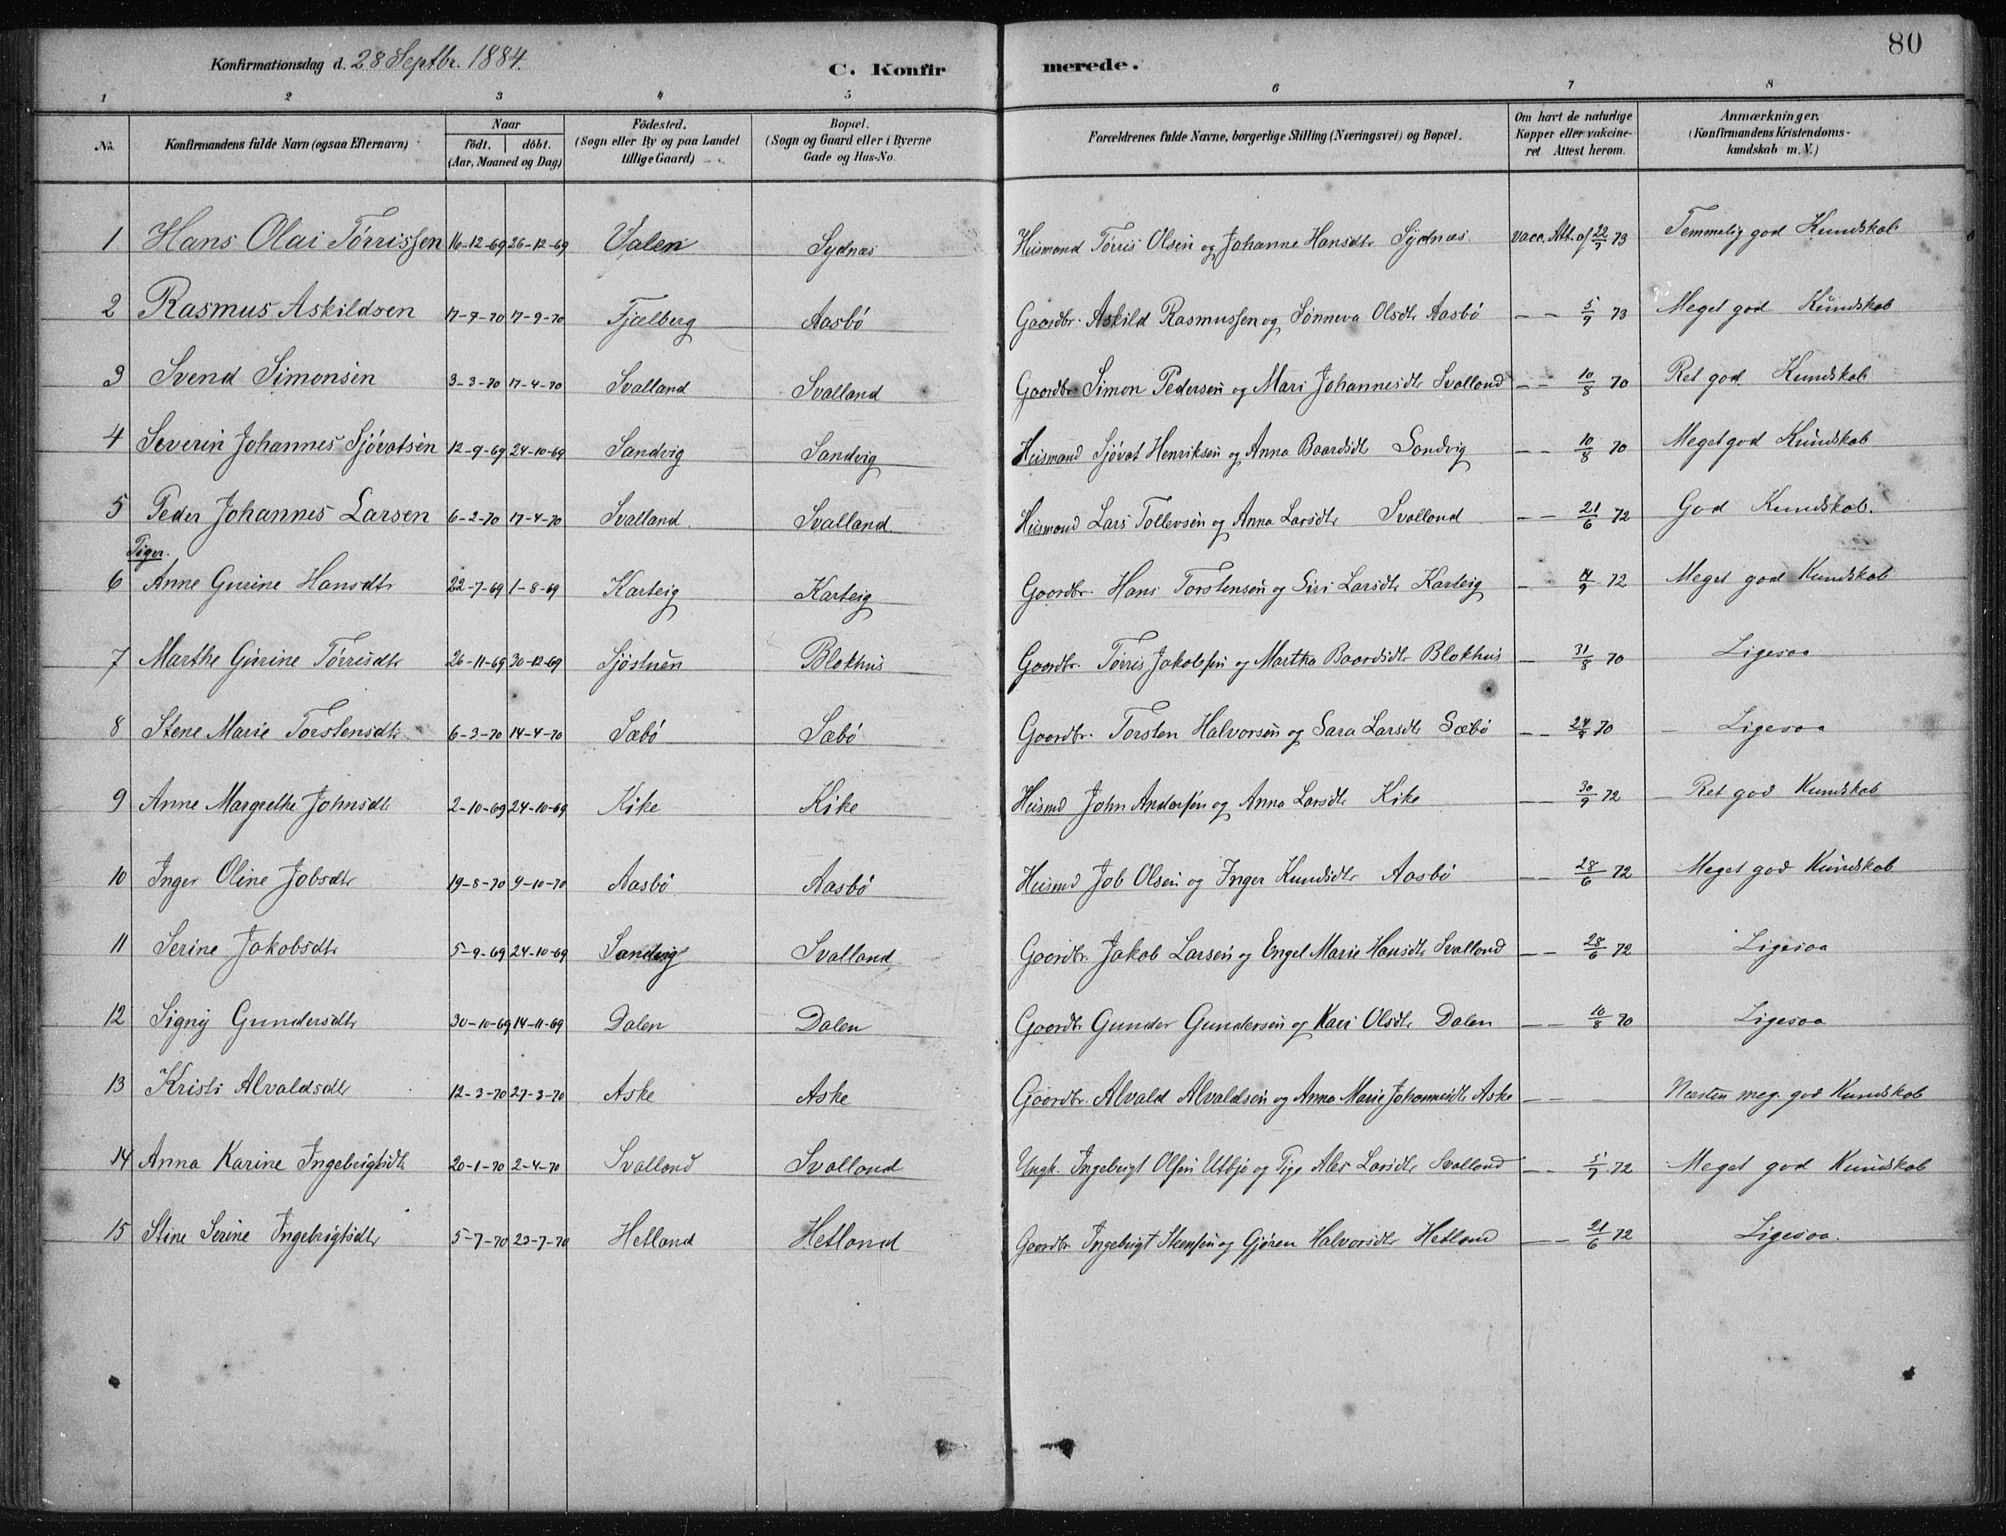 80
Konfirmationsdag d. 28 Septbr. 1884.
C. Konfirmerede.
1 2 3 4 5 6 7 8
No. | Konfirmandens fulde Navn (ogsaa Efternavn) | Naar født. døbt. (Aar, Maaned og Dag) | Fødested. (Sogn eller By og paa Landet tillige Gaard) | Bopæl. (Sogn og Gaard eller i Byerne Gade og Hus-No. | Forældrenes fulde Navne, borgerlige Stilling (Næringsvei) og Bopæl. | Om havt de naturlige Kopper eller vakcineret Attest herom. | Anmærkninger. (Konfirmandens Kristendomskundskab m. V.)
1 Hans Olai Tørrissen 16-12-69 26-12-69 Valen Sydnæs Huusmand Tørris Olsen og Johanne Hansdtr Sydnæs vacc. Att. af 22/7 73 Temmelig god Kundskab
2 Rasmus Askildsen 17-7-70 17-9-70 Fjælberg Aasbø Gaardbr. Askild Rasmussen og Sønneva Olsdtr Aasbø — — 5/9 73 Meget god Kundskab
3 Svend Simonsen 3-3-70 17-4-70 Svalland Svalland Gaardbr. Simon Pedersen og Mari Johannesdtr Svalland — — 10/8 70 Ret god Kundskab
4 Severin Johannes Sjøvatsen 12-9-69 24-10-69 Sandvig Sandvig Huusmand Sjøvat Henriksen og Anna Baardsdtr Sandvig — — 10/8 70 Meget god Kundskab
5 Peder Johannes Larsen 6-2-70 17-4-70 Svalland. Svalland Huusmand Lars Tollevsen og Anna Larsdtr Svalland — — 21/6 72 God Kundskab.
Piger.
6 Anne Gurine Hansdtr 22-7-69 1-8-69 Karteig Karteig Gaardbr. Hans Torstensen og Siri Larsdtr Karteig — /9 72 Meget god Kundskab
7 Marthe Gurine Tørrisdtr 26-11-69 30-12-69 Sjøstuen Blokhus Gaardbr. Tørris Jakobsen og Martha Baardsdtr Blokhus — 31/8 70 Ligesaa
8 Stene Marie Torstensdtr 6-3-70 14-4-70 Sæbø Sæbø Gaardbr. Torsten Halvorsen og Sara Larsdtr Sæbø — — 24/8 70 Ligesaa
9 Anne Margrethe Johnsdtr 2-10-69 24-10-69 Kike Kike Huusmd John Andersen og Anna Larsdtr Kike — — 30/9 72 Ret god Kundskab
10 Inger Oline Jobsdtr 19-8-70 9-10-70 Aasbø Aasbø Huusmd Job Olsen og Inger Knudsdtr Aasbø — — 28/6 72 Meget god Kundskab
11 Serine Jakobsdtr 5-9-69 24-10-69 Sandvig Svalland Gaardbr. Jakob Larsen og Engel Marie Hansdtr Svalland — — 28/6 72 Ligesaa
12 Signy Gundersdtr 30-10-69 14-11-69 Dalen Dalen Gaardbr Gunder Gundersen og Kari Olsdtr Dalen — — 10/8 70 Ligesaa
13 Kristi Alvaldsdtr 12-3-70 27-3-70 Aske Aske Gaardbr. Alvald Alvaldsen og Anna Marie Johannesdtr Aske — — Næsten meg. god Kundskab
14 Anna Karine Ingebrigtsdtr 20-1-70 2-4-70 Svalland Svalland Ungk. Ingebrigt Olsen Utbjo og Pige Larsdtr Svalland — — 5/7 72 Meget god Kundskab
15 Stine Serine Ingebrigtsdtr 5-7-70 23-7-70 Hetland Hetland Gaardbr Ingebrigt Steensen og Gjøren Halvorsdtr Hetland — — 21/6 72 Ligesaa.